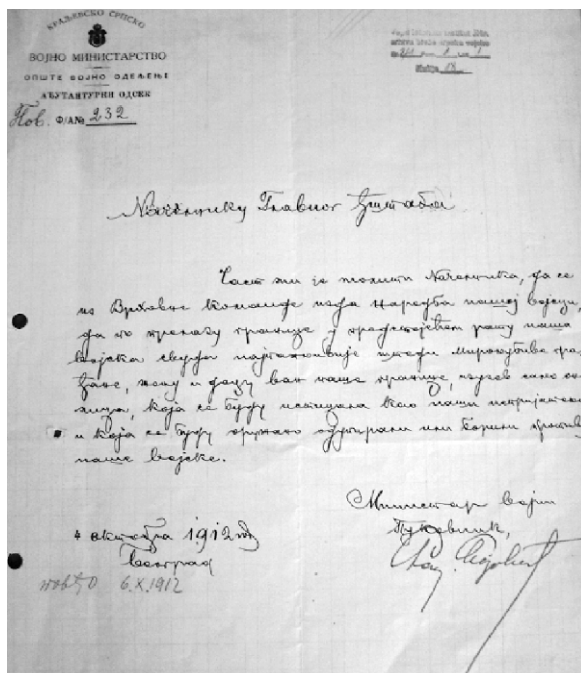 КРАЉЕВСКО СРПСКО
ВОЈНО МИНИСТАРСТВО
ОПШТЕ ВОЈНО ОДЕЉЕЊЕ
АЂУТАНТУРНИ ОДСЕК
Пов. Ф/А№ 232
Начелнику Главног Ђштаба
Част ми је молити Начелника, да се
из Врховне Команде изда наредба нашој војсци,
да по преласку границе у предстојећем рату наша
војска свуда најпажљивије штеди мирољубиве гра-
ђане, жену и децу ван наше границе, изузев само она
лица, која се буду показала као наши непријатељи
и која се буду оружано одупирали или борили против
наше војске.
Министар војни
Пуковник,
4 октобра 1912 год
Београд
6.X.1912